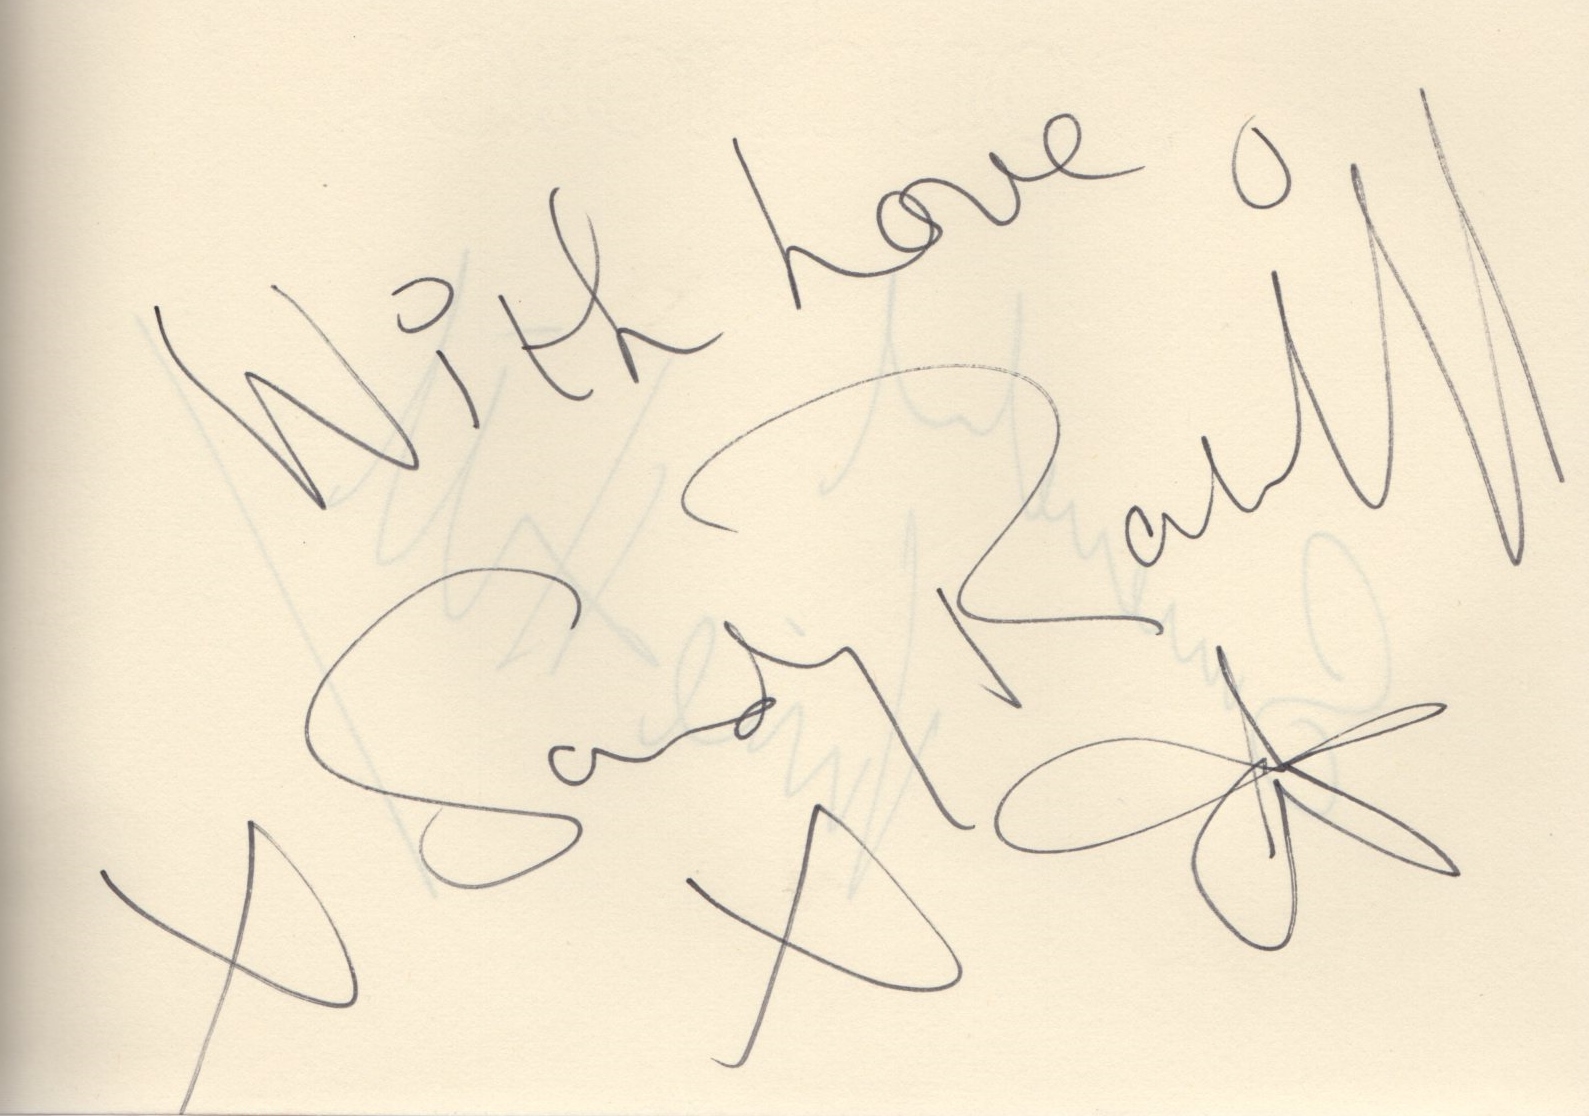 With Love
Sandy Ratcliff
X X X